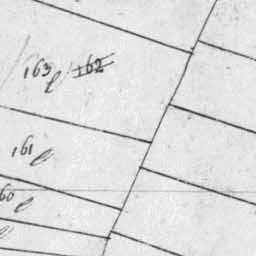 163 162
161
60